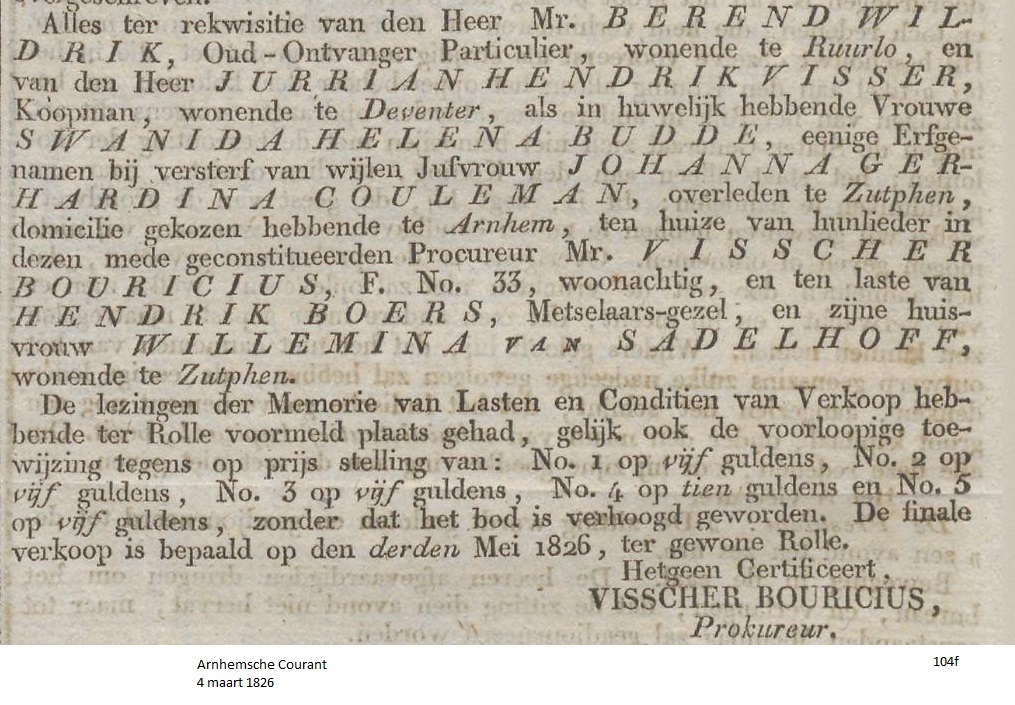 Alles ter rekwisitie van den Heer Mr. BEREND WIL-
DRIK, Oud-Ontvanger Particulier, wonende te Ruurlo, en
van den Heer JURRIAN HENDRIK VISSER,
Koopman, wonende te Deventer, als in huwelijk hebbende Vrouwe
SWANIDA HELENA BUDDE, eenige Erfge-
namen bij versterf van wijlen Jufvrouw JOHANNA GER-
HARDINA COULEMAN, overleden te Zutphen,
domicilie gekozen hebbende te Arnhem, ten huize van hunlieder in
dezen mede geconstitueerden Procureur Mr. VISSCHER
BOURICIUS, F. No. 33, woonachtig, en ten laste van
HENDRIK BOERS, Metselaars-gezel, en zijne huis-
vrouw WILLEMINA VAN SADELHOFF,
wonende te Zutphen.
De lezingen der Memorie van Lasten en Conditien van Verkoop heb-
bende ter Rolle voormeld plaats gehad, gelijk ook de voorloopige toe-
wijzing tegens op prijs stelling van: No. 1 op vijf guldens, No. 2 op
vijf guldens, No. 3 op vijf guldens, No. 4 op tien guldens en No. 5
op vijf guldens, zonder dat het bod is verhoogd geworden. De finale
verkoop is bepaald op den derden Mei 1826, ter gewone Rolle.
Hetgeen Certificeert,
VISSCHER BOURICIUS,
Prokureur.
Arnhemsche Courant
4 maart 1826
104f